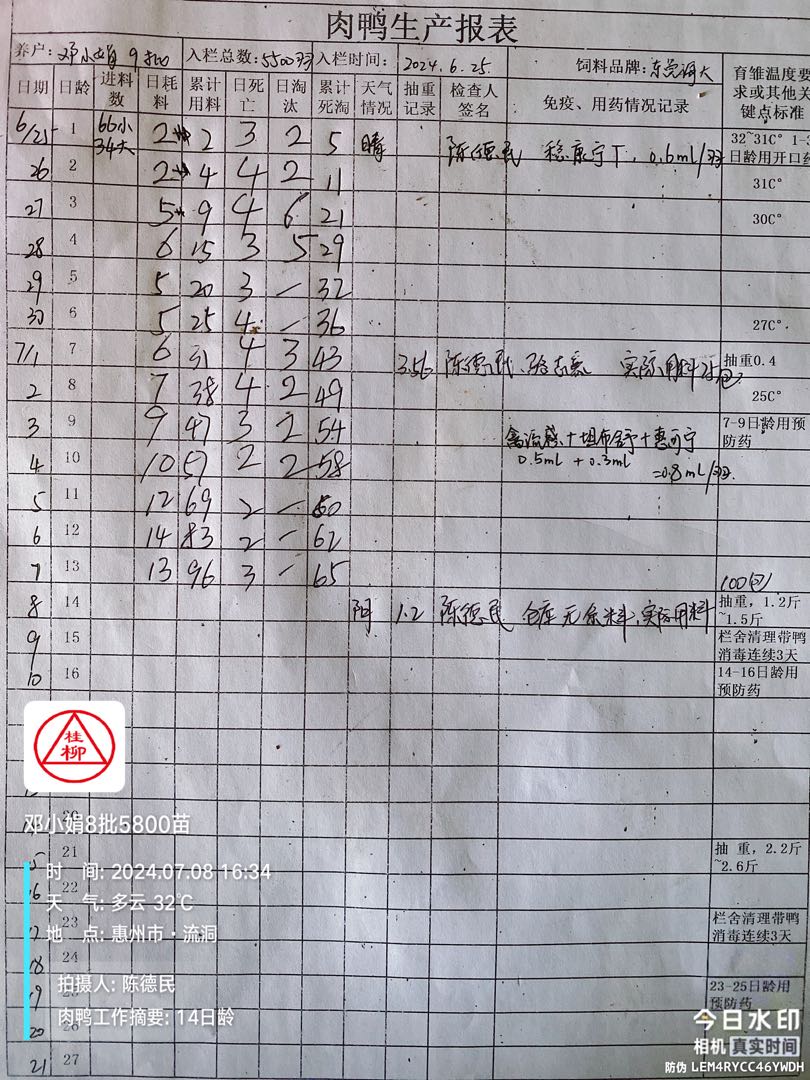 肉鸭生产报表
养户: 邓小娟 9批 入栏总数: 5500羽 入栏时间: 2024.6.25. 饲料品牌: 东莞 育雏温度要求或其他关键点标准
日期 日龄 进料数 日耗料 累计用料 日死亡 日淘汰 累计死淘 天气情况 抽重记录 检查人签名 免疫、用药情况记录
6/25 1 66小 34大 2 2 3 2 5 晴 陈德民 0.6ml/羽 32~31C° 1-3日龄用开口药
26 2 2 4 4 2 11 31C°
27 3 5 9 4 6 21 30C°
28 4 6 15 3 5 29
29 5 5 20 3 — 32
30 6 5 25 4 — 36 27C°
7/1 7 6 31 4 3 43 3.56 陈德民、 实际用料 抽重0.4
2 8 7 38 4 2 49 25C°
3 9 9 47 3 2 54 7-9日龄用预防药
4 10 10 57 2 2 58 0.5ml + 0.3ml =0.8ml/羽.
5 11 12 69 2 — 60
6 12 14 83 2 — 62
7 13 13 96 3 — 65 100包
8 14 阴 1.2 陈德民 仓库无余料,实际用料 抽重, 1.2斤~1.5斤
9 15 栏舍清理带鸭消毒连续3天
10 16 14-16日龄用预防药
桂柳
邓小娟8批5800苗
15 21 抽 重, 2.2斤~2.6斤
时 间: 2024.07.08 16:34
16 22
天 气: 多云 32℃
17 23 栏舍清理带鸭消毒连续3天
地 点: 惠州市·流洞
18 24
拍摄人: 陈德民
19 25 23-25日龄用预防药
肉鸭工作摘要: 14日龄
20 26
21 27
今日水印
相机 真实时间
防伪 LEM4RYCC46YWDH